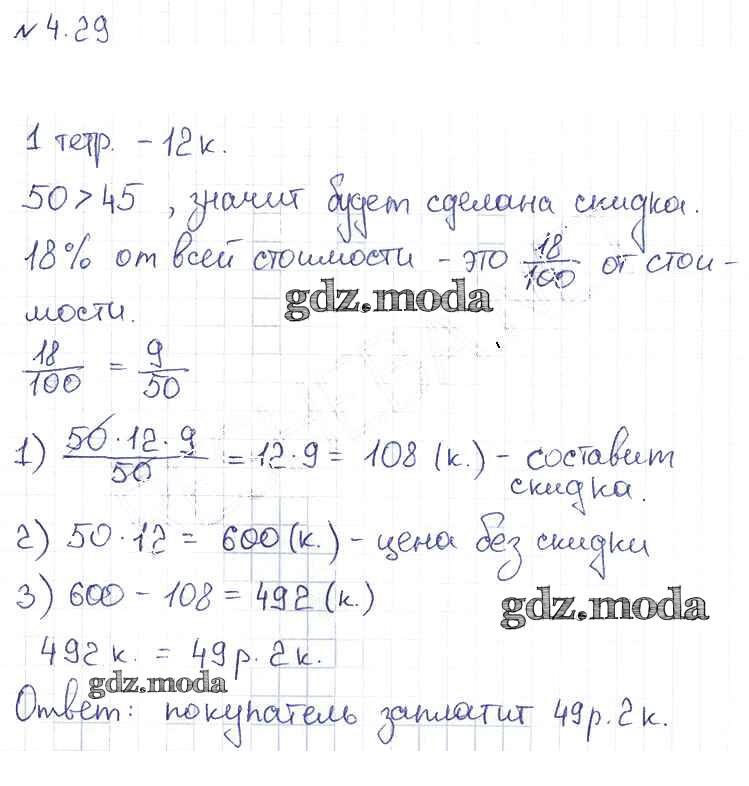 № 4.29
1 тетр. - 12 к.
50 > 45, значит будет сделана скидка.
18% от всей стоимости - это 18/100 от стои-
gdz.moda
мости.
18/100 = 9/50
1) 50·12·9/50 = 12·9 = 108 (к.) - составит
скидка.
2) 50·12 = 600 (к.) - цена без скидки
3) 600 - 108 = 492 (к.)
gdz.moda
492 к. = 49 р. 2 к.
gdz.moda
Ответ: покупатель заплатит 49 р. 2 к.